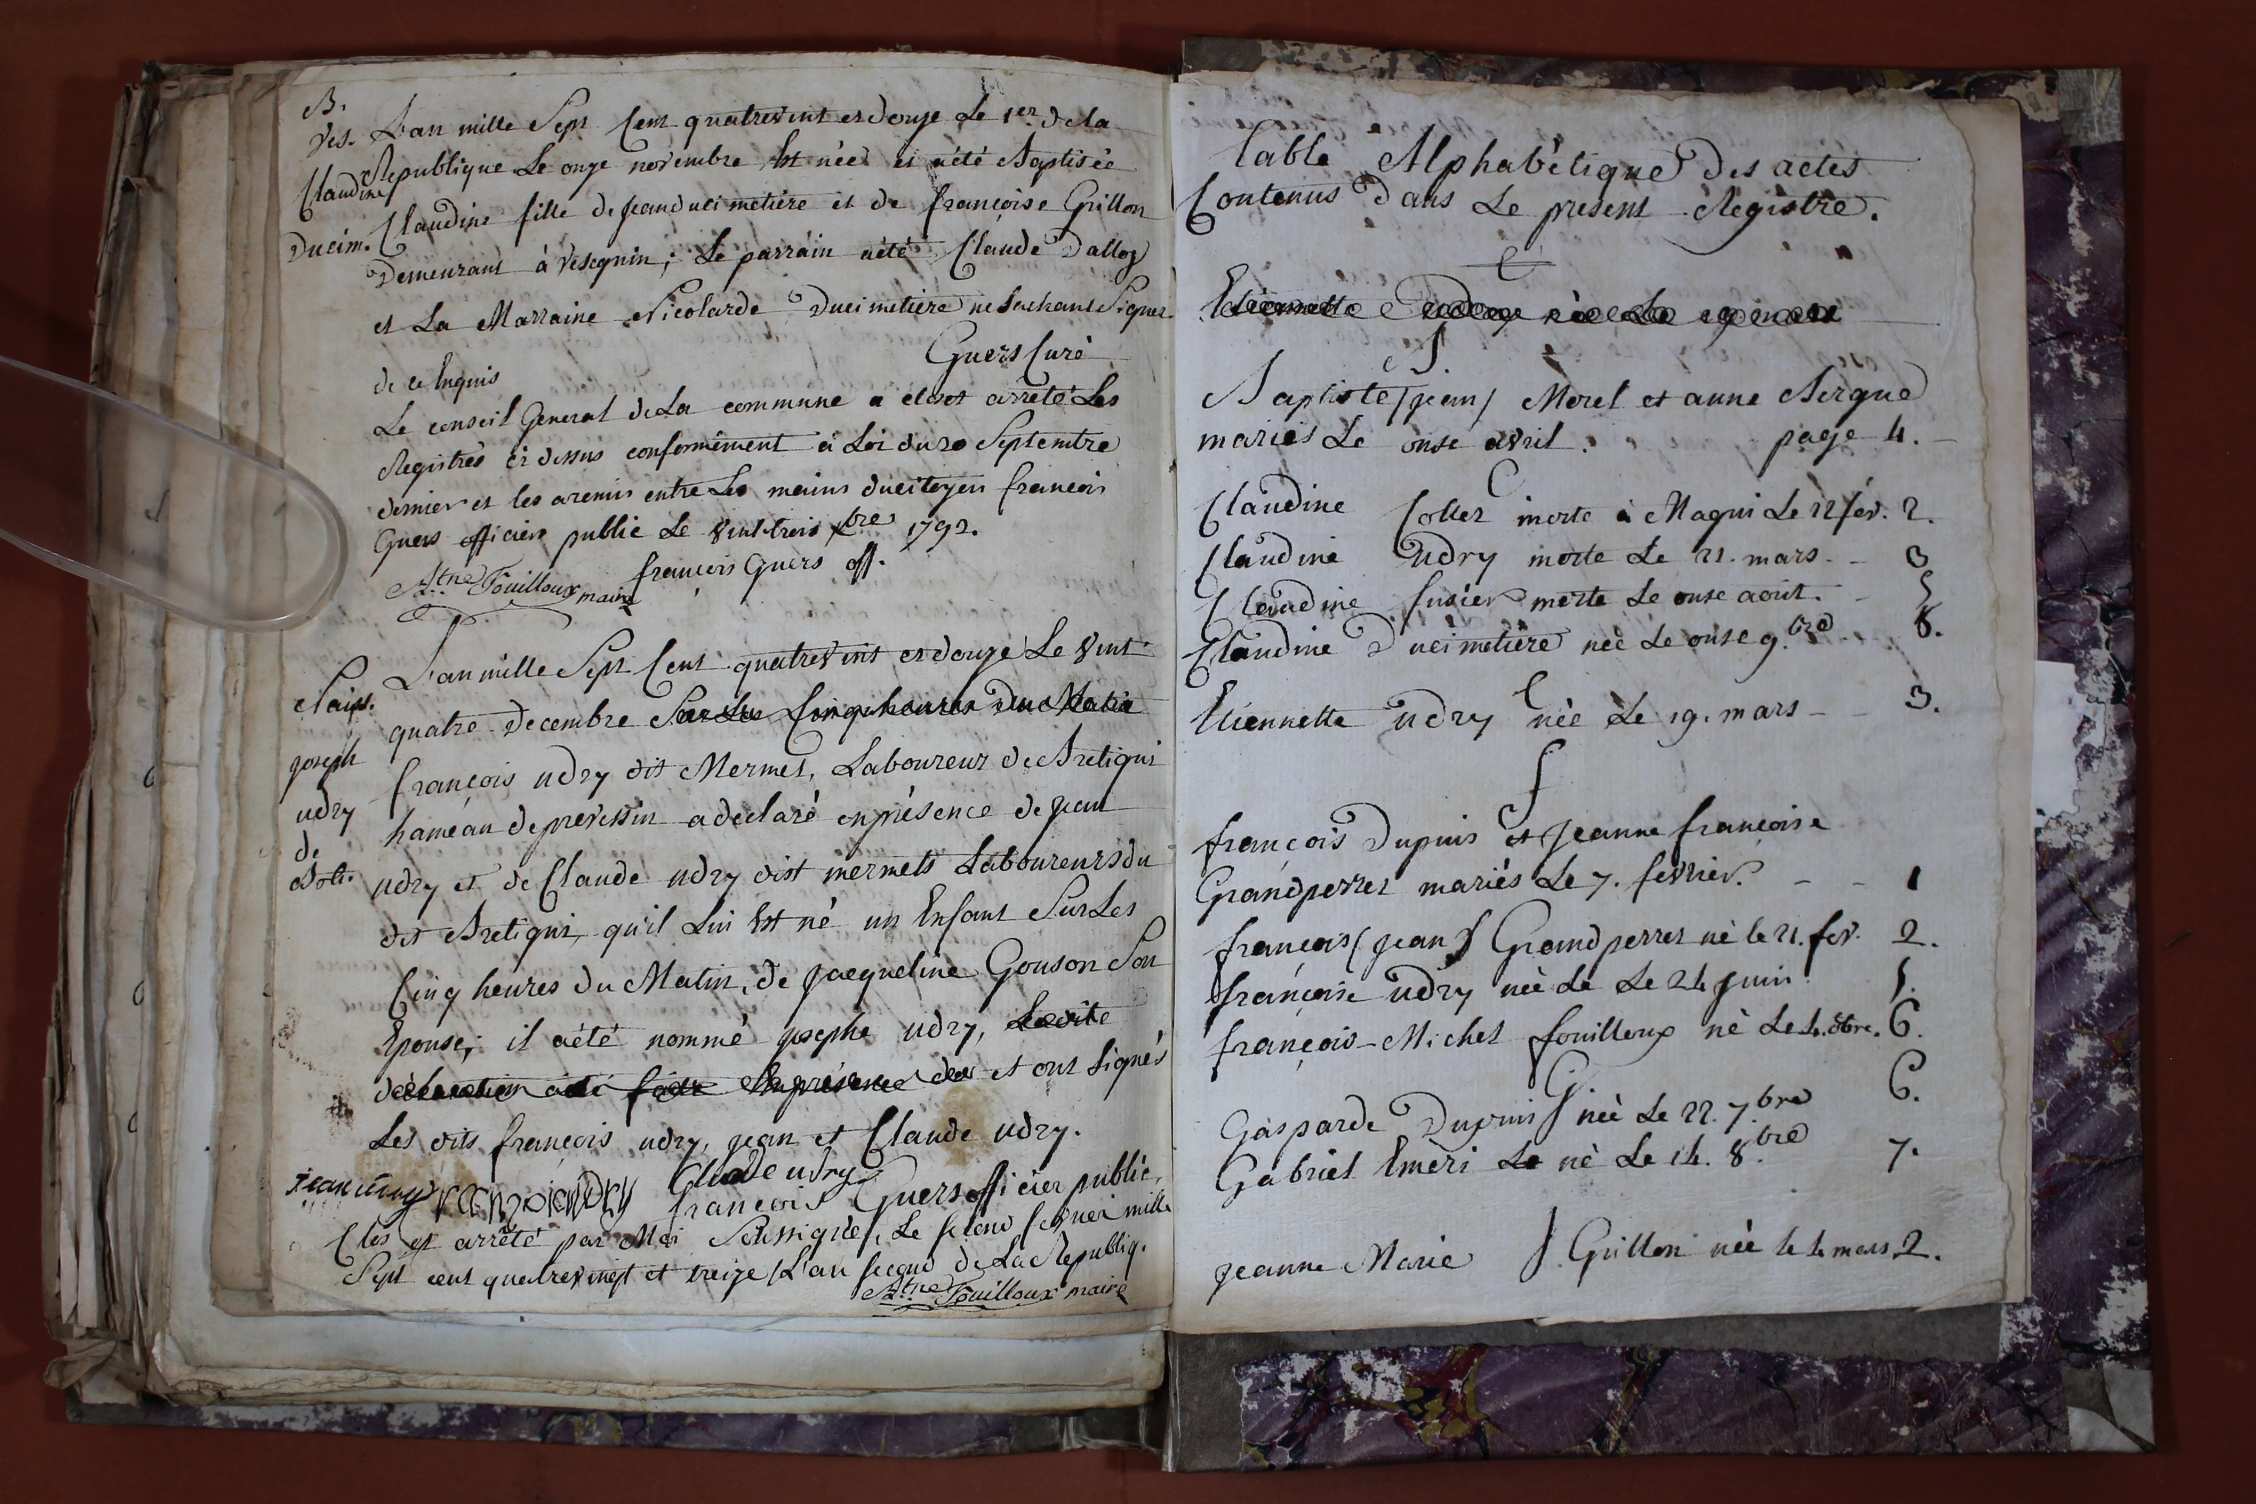 B.
Ves.
Claudine
Ducim.
L'an mille Sept Cent quatrevint et douze Le 1er de la
Republique Le onze novembre Est née et a été Baptisée
Claudine fille de jean ducimetiére et de françoise Grillon
Demeurant à Vésegnin; Le parrain a été Claude Dalloz
et La Marraine Nicolarde Ducimetiere ne Sachant Signer
de ce Enquis
Guers Curé
Le conseil General de La commune a clos et arrêté Les
Registres ci dessus conformément à Loi du 20 Septembre
dernier et les a remis entre Les mains du citoyen françois
Guers officier public Le vint trois xbre 1792.
françois Guers off.
Fouilloux maire
Naiss.
joseph
udry
de
L'an mille Sept Cent quatrevint et douze Le vint
quatre Decembre Sur Les Cinq heures Du Matin
françois udry dit Mermet, Laboureur de Bretigni
hameau de prevessin a declaré en présence de jean
udry et de Claude udry dist mermets Laboureurs du
dit Bretigni, qu'il Lui Est né un Enfant Sur Les
Cinq heures du Matin, de jacqueline Gouson Son
Epouse; il a été nommé josephe udry,
et ont signés
Les dits françois udry, jean et Claude udry.
jean udry françoi udry Claude udry
françois Guers officier public,
Clos et arrêté par Moi Soussigné, Le Second fevrier mille
Sept cent quatrevingt et treize L'an second de La Republiq.
Fouilloux maire
Table Alphabétique des actes
Contenus Dans Le present Registre.
E
Etiennette udry née Le 19 mars
B.
Baptiste /jean/ Morel et anne Bergue
mariés Le onse avril. page 4.
C
Claudine Collet morte à Magni Le 12 fév. 2.
Claudine udry morte Le 21. mars - 3
Claudine fusier morte Le onse août. - 5
Claudine Ducimetière née Le onse 9.bre 8.
E
Etiennette udry née Le 19. mars - - 3.
f
françois Dupuis et jeanne françoise
Grandperret mariés Le 7. fevrier. - - 1
françois (jean) Grandperret né le 21. fev. 2.
françoise udry née Le Le 24 juin 5.
françois-Michel fouilloux né Le 4. 8bre. 6.
G.
Gasparde Dupuis née Le 22. 7bre 6.
Gabriel Eméri Le né Le 14. 8.bre 7.
J.
jeanne Marie Grillon née le 4 mars 2.